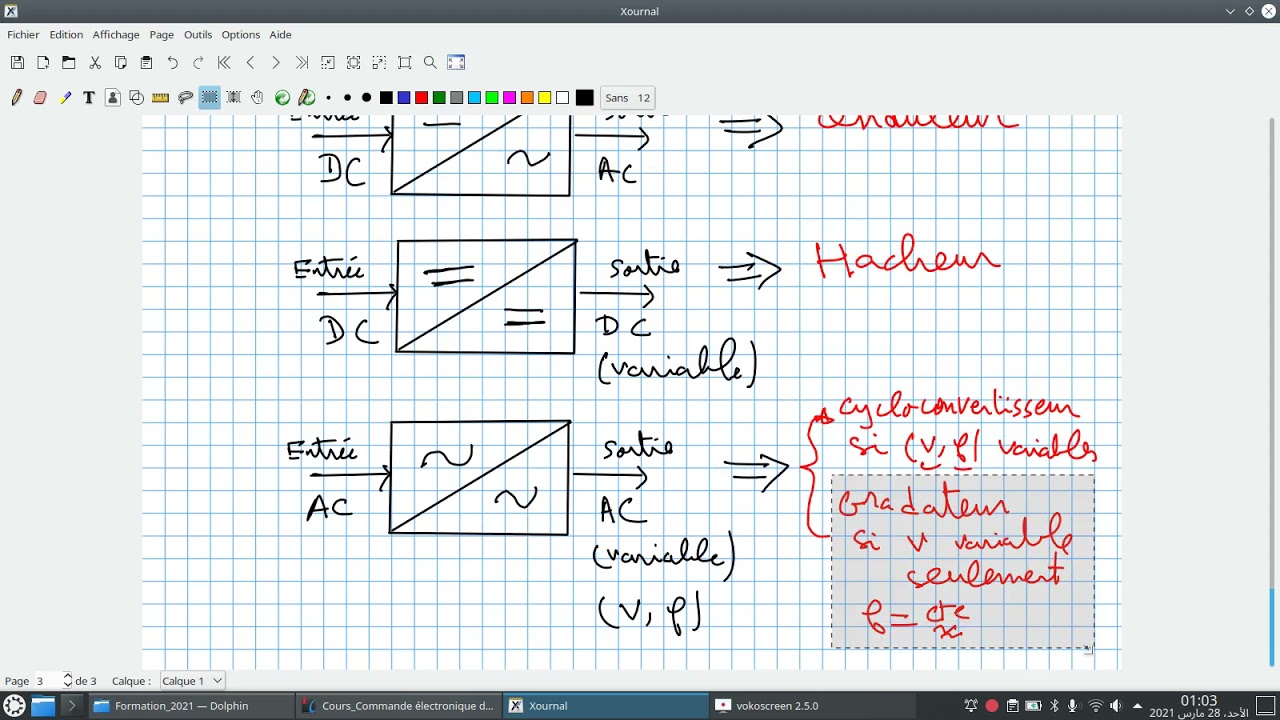 Xournal
Fichier Edition Affichage Page Outils Options Aide
Sans 12
Entrée
DC
AC
Entrée
DC
sortie
DC
(variable)
⇒ Hacheur
Entrée
AC
sortie
AC
(variable)
(V, f)
⇒
cycloconvertisseur
si (V, f) variables
Gradateur
si V variable
seulement
f = cte
Page 3 de 3 Calque : Calque 1
Formation_2021 — Dolphin
Cours_Commande électronique d...
Xournal
vokoscreen 2.5.0
01:03
الأحد، 28 مارس 2021